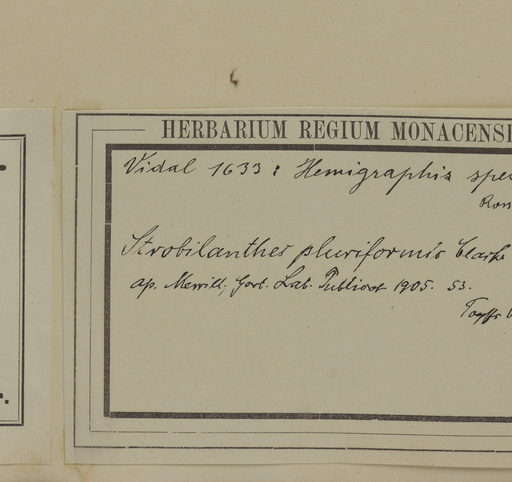 HERBARIUM REGIUM MONACENSE
Vidal 1633 : Hemigraphis spec
Strobilanthes pluriformis Clarke
ap. Merrill, Govt. Lab. Publicat 1905. 53.